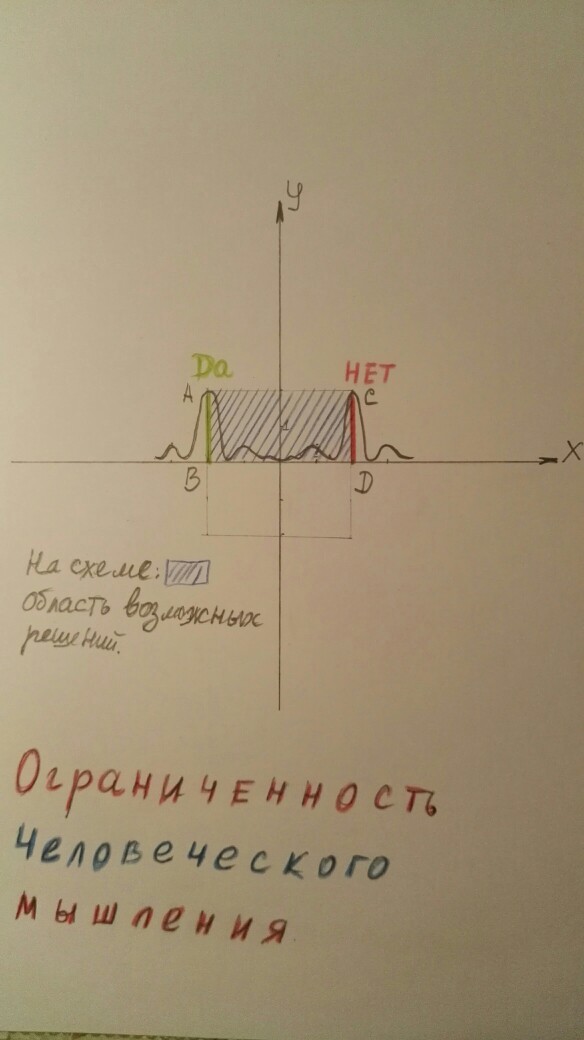 У
Да
НЕТ
A
C
1
X
B
D
На схеме:
область возможных
решений.
Ограниченность
Человеческого
мышления